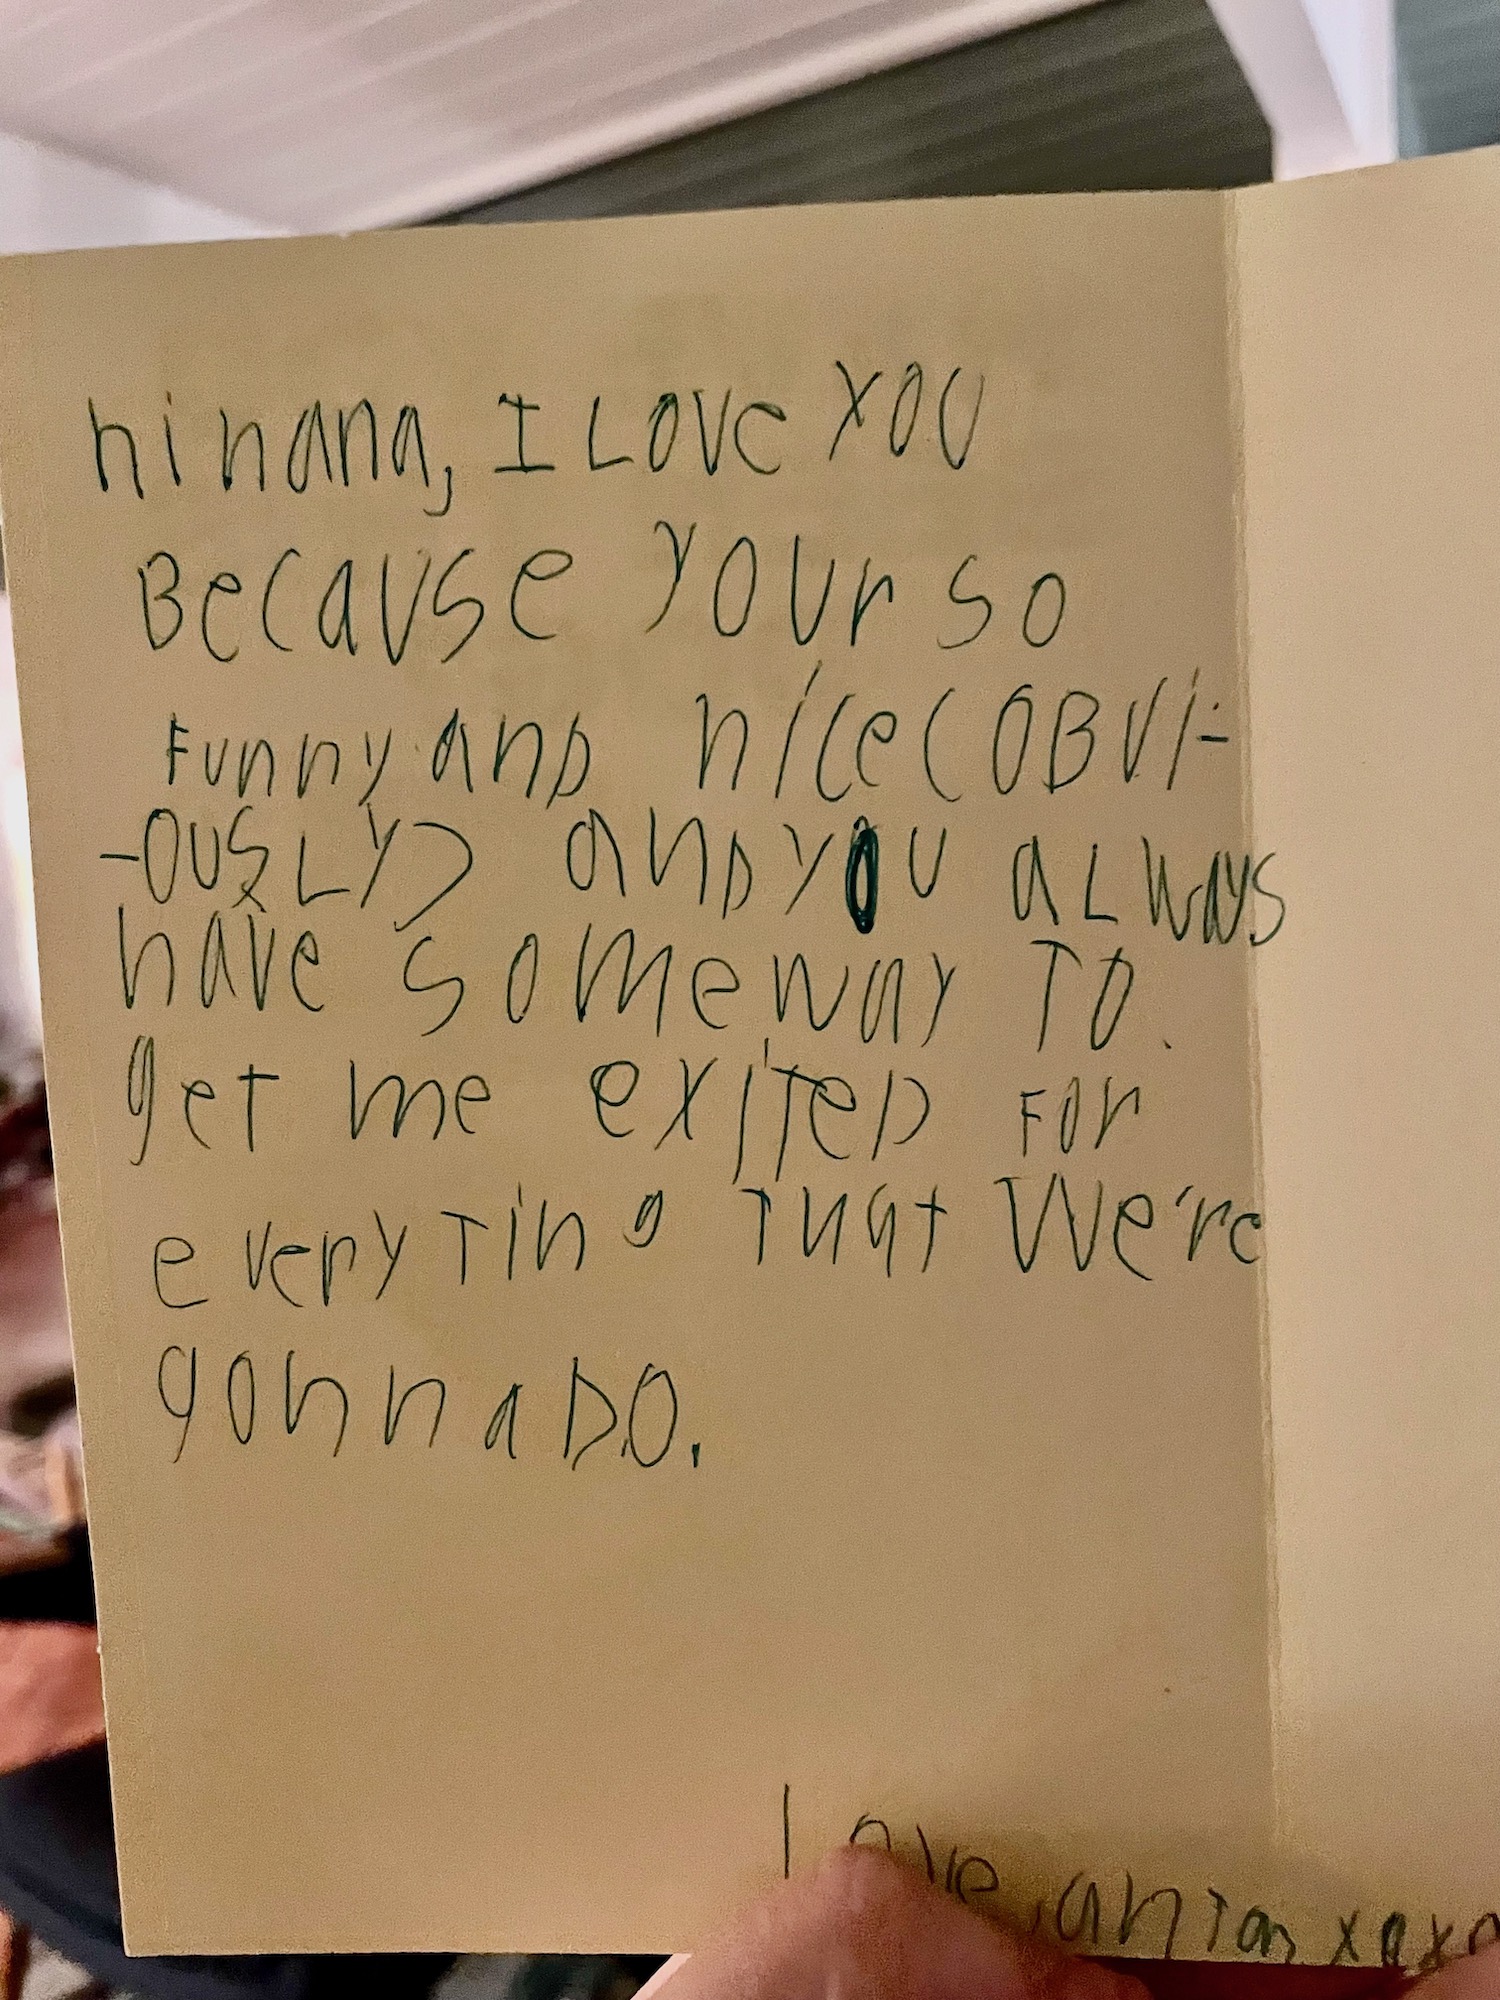 hi nana, I LOVe YOU
BeCause YOUr so
Funny and nice (OBVI-
-OUSLY) anD YOU aLways
have someway TO.
get me exiTeD For
everyTing That We're
gonna DO.
Love, anTon xoxo